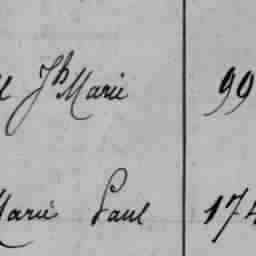 Jh Marie 99
Marie Paul 174